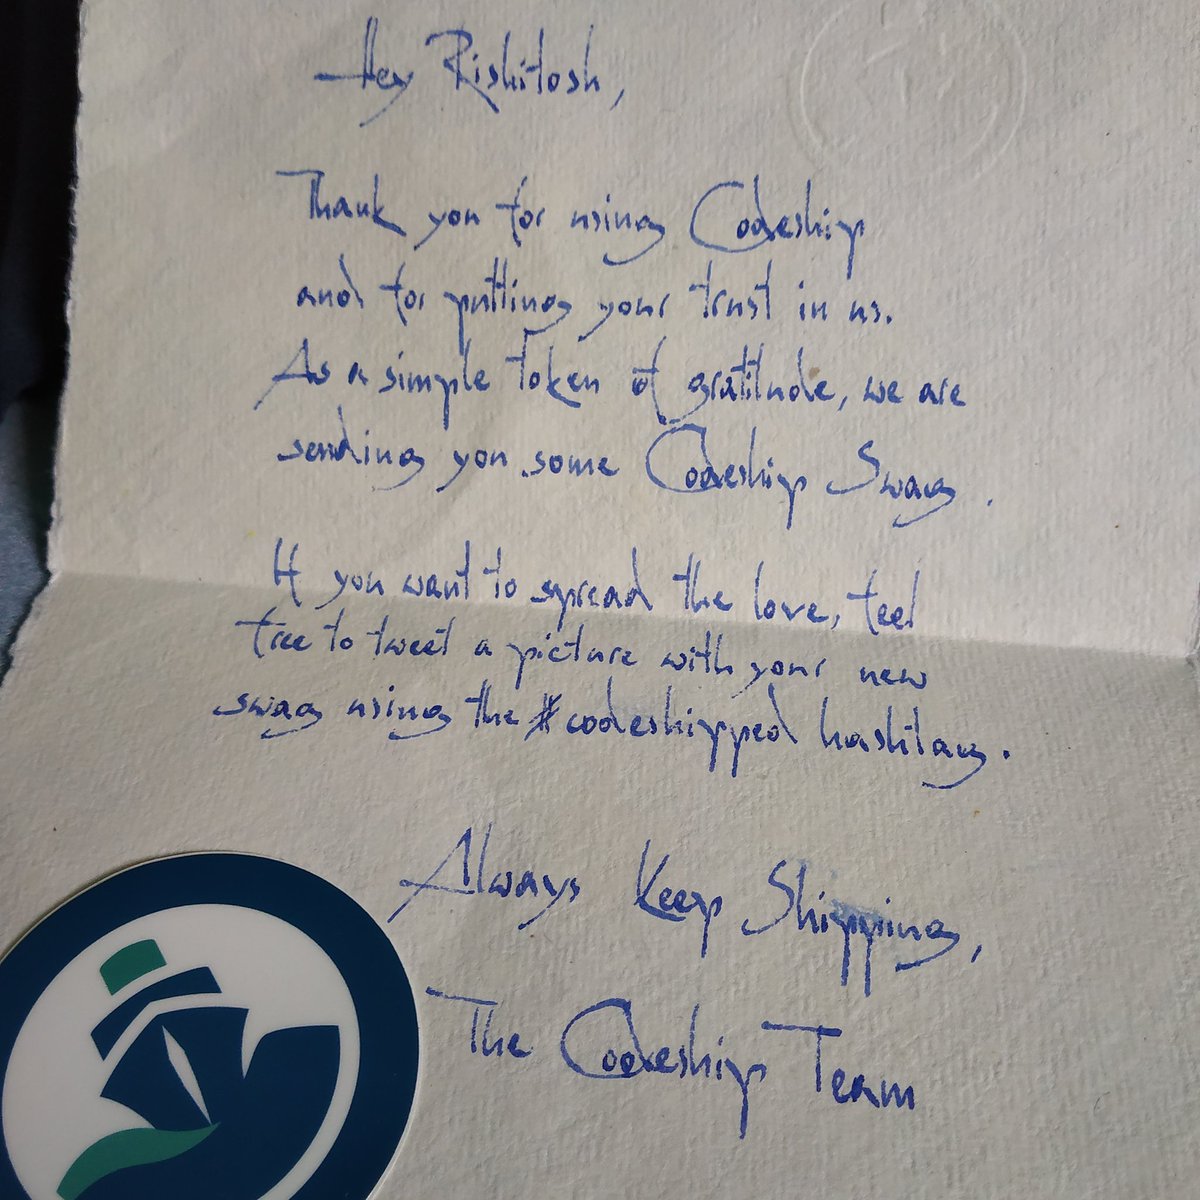 Hey Rishitosh,
Thank you for using Codeship
and for putting your trust in us.
As a simple token of gratitude, we are
sending you some Codeship Swag.
If you want to spread the love, feel
free to tweet a picture with your new
swag using the #codeshipped hashtag.
Always Keep Shipping,
The Codeship Team